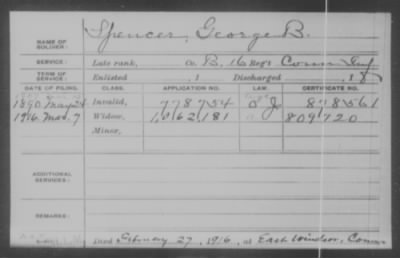 NAME OF SOLDIER: Spencer, George B.
SERVICE: Late rank, Co. B, 16 Reg't Conn Inf
TERM OF SERVICE: Enlisted , 1 Discharged , 18
DATE OF FILING. CLASS. APPLICATION NO. LAW. CERTIFICATE NO.
1890 May 24 Invalid, 778754 878561
1916 Mar. 7 Widow, 1,062,181 809720
Minor,
ADDITIONAL SERVICES:
REMARKS:
Died February 27, 1916, at East Windsor, Conn.